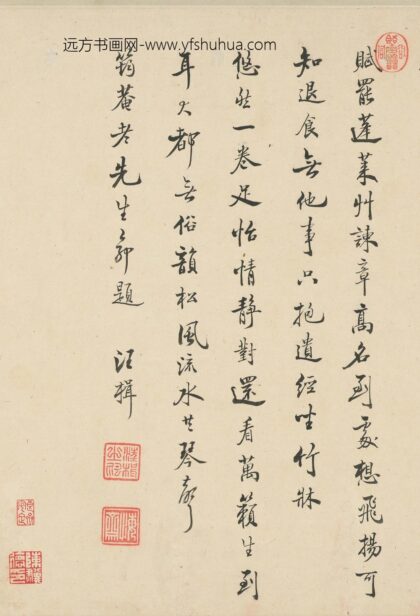 远方书画网-www.yfshuhua.com
賦罷蓬萊艸諫章高名到處想飛揚可
知退食無他事只抱遺經坐竹牀
悠然一卷足怡情靜對還看萬籟生到
耳大都無俗韻松風流水共琴聲
筠菴老先生命題 汪楫
汪楫之印